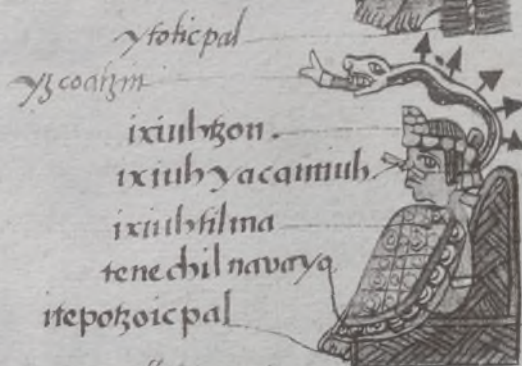 ytolicpal
yzcoatzin
ixiuhtzon.
ixiuhyacamiuh
ixiuhtilma
tenechilnavayo
itepotzoicpal